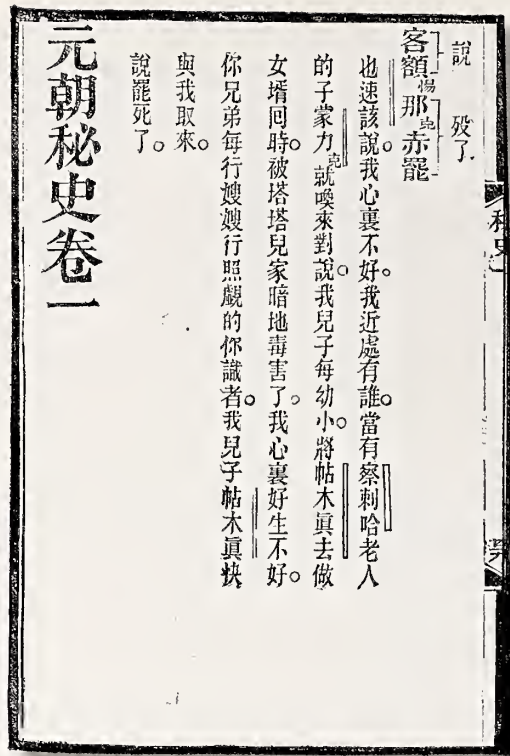 說 殁了
客額惕那克赤罷
也速該說。我心裏不好。我近處有誰。當有察剌哈老人
的子蒙力克。就喚來對說。我兒子每幼小。將帖木眞去做
女壻回時。被塔塔兒家暗地毒害了。我心裏好生不好。
你兄弟每行嫂嫂行照覷的你識者。我兒子帖木眞快
與我取來。
說罷死了。
元朝秘史卷一